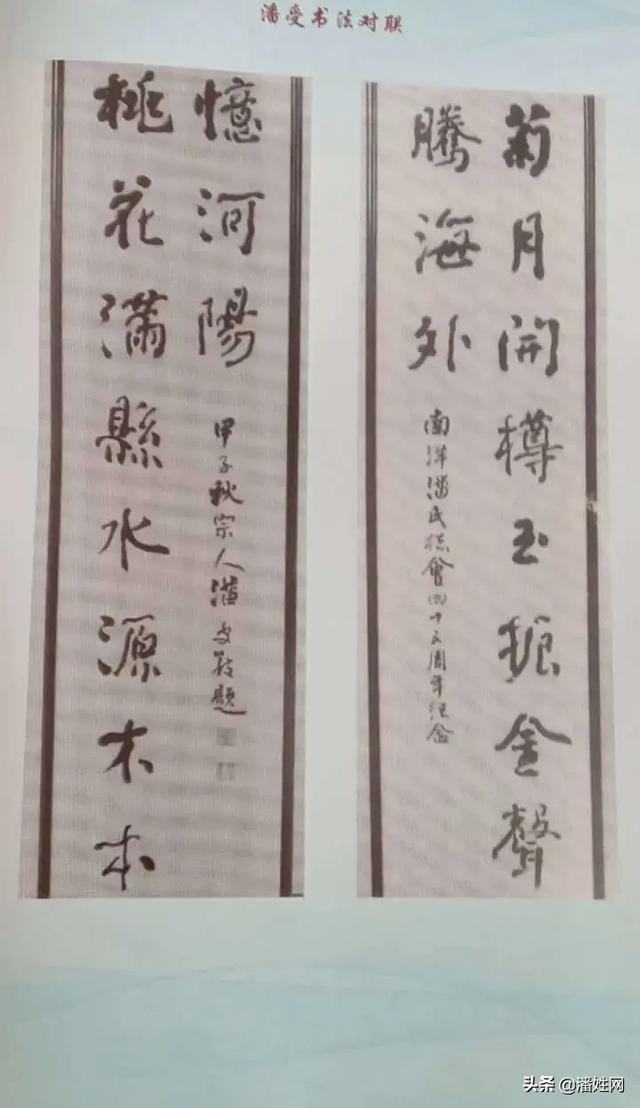 潘受书法对联
菊月開樽玉振金聲
騰海外
南洋潘氏總會四十五周年紀念
桃花滿縣水源木本
憶河陽
甲子秋宗人潘受敬題
头条 @潘姓网